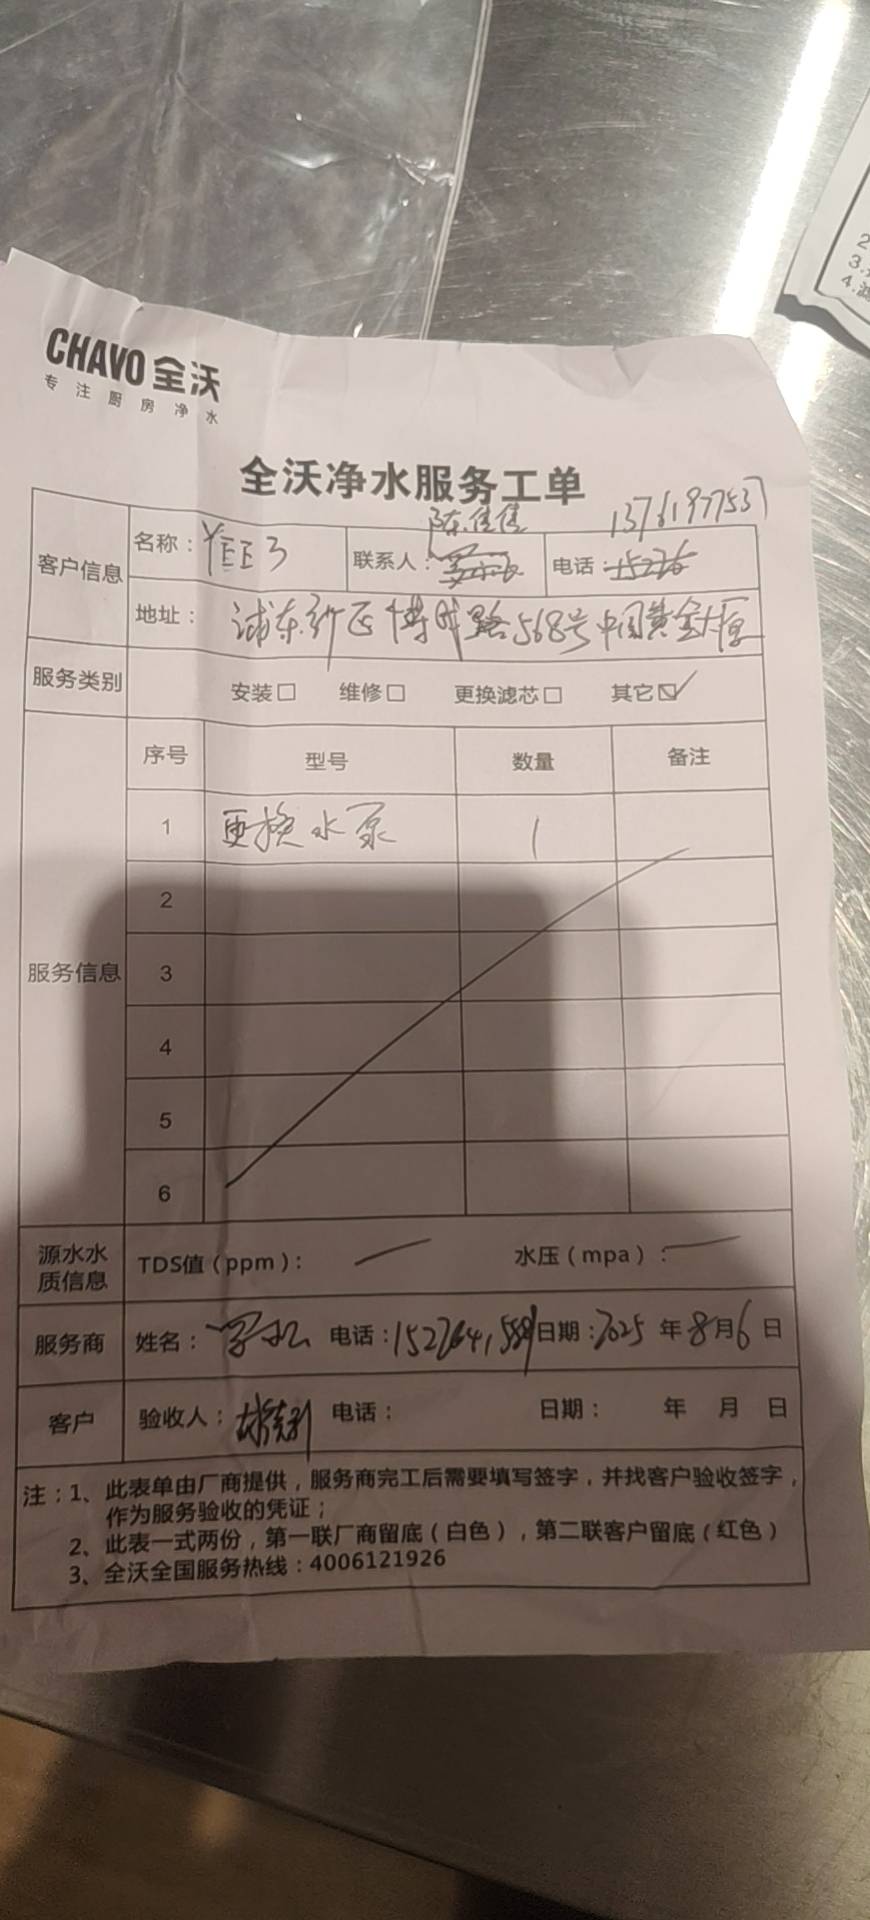 CHAVO 全沃
专注厨房净水
全沃净水服务工单
客户信息
名称：YEE3
联系人：陈佳佳
电话：15226
13761977537
地址：浦东新区博成路568号中国黄金大厦
服务类别
安装□ 维修□ 更换滤芯□ 其它☑
服务信息
序号 型号 数量 备注
1 更换水泵 1
2
3
4
5
6
源水水质信息
TDS值（ppm）：— 水压（mpa）：—
服务商 姓名： 电话： 日期：2025年8月6日
客户 验收人： 电话： 日期： 年 月 日
注：1、此表单由厂商提供，服务商完工后需要填写签字，并找客户验收签字，
作为服务验收的凭证；
2、此表一式两份，第一联厂商留底（白色），第二联客户留底（红色）
3、全沃全国服务热线：4006121926
2
3.
4.滤